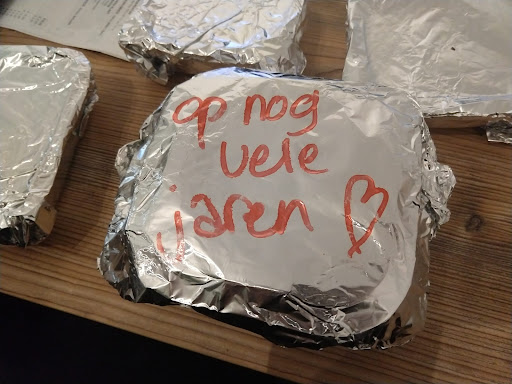 op nog
vele
jaren ♡